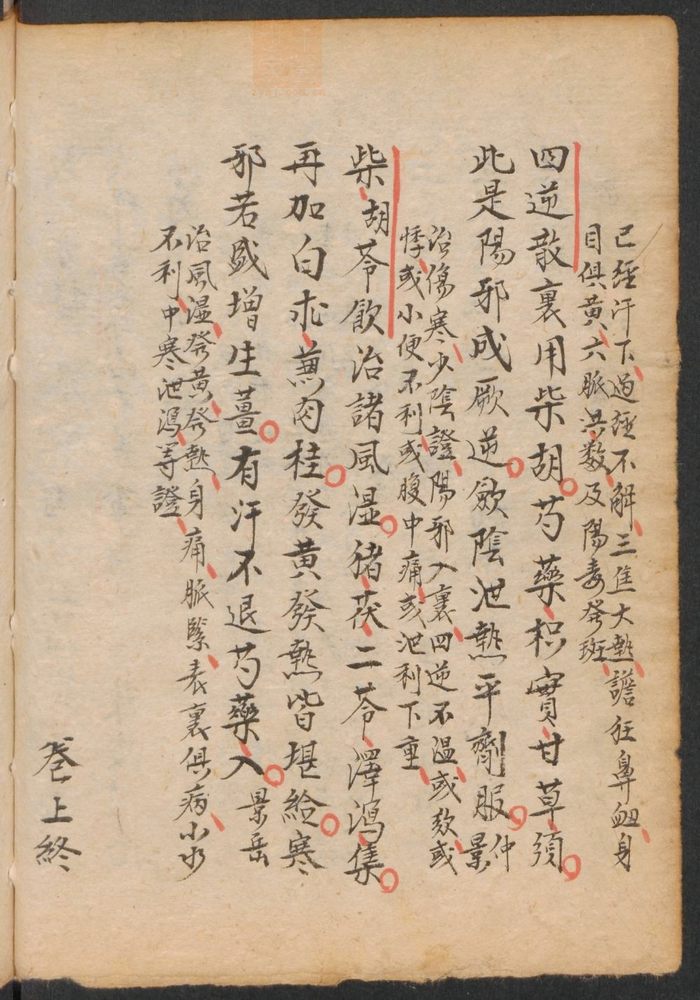 已經汗下過經不解三焦大熱譫狂鼻衄身
目俱黃六脈洪数及陽毒發斑
四逆散裏用柴胡芍藥枳實甘草須
此是陽邪成厥逆斂陰泄熱平劑服仲景
治傷寒少陰證陽邪入裏四逆不溫或欬或
悸或小便不利或腹中痛或泄利下重
柴胡苓飲治諸風湿猪茯二苓澤瀉集
再加白朮蕪肉桂發黃發熱皆堪給寒
邪若盛增生薑有汗不退芍藥入景岳
治風湿發黃發熱身痛脈緊表裏俱病小水
不利中寒泄瀉等證
卷上終